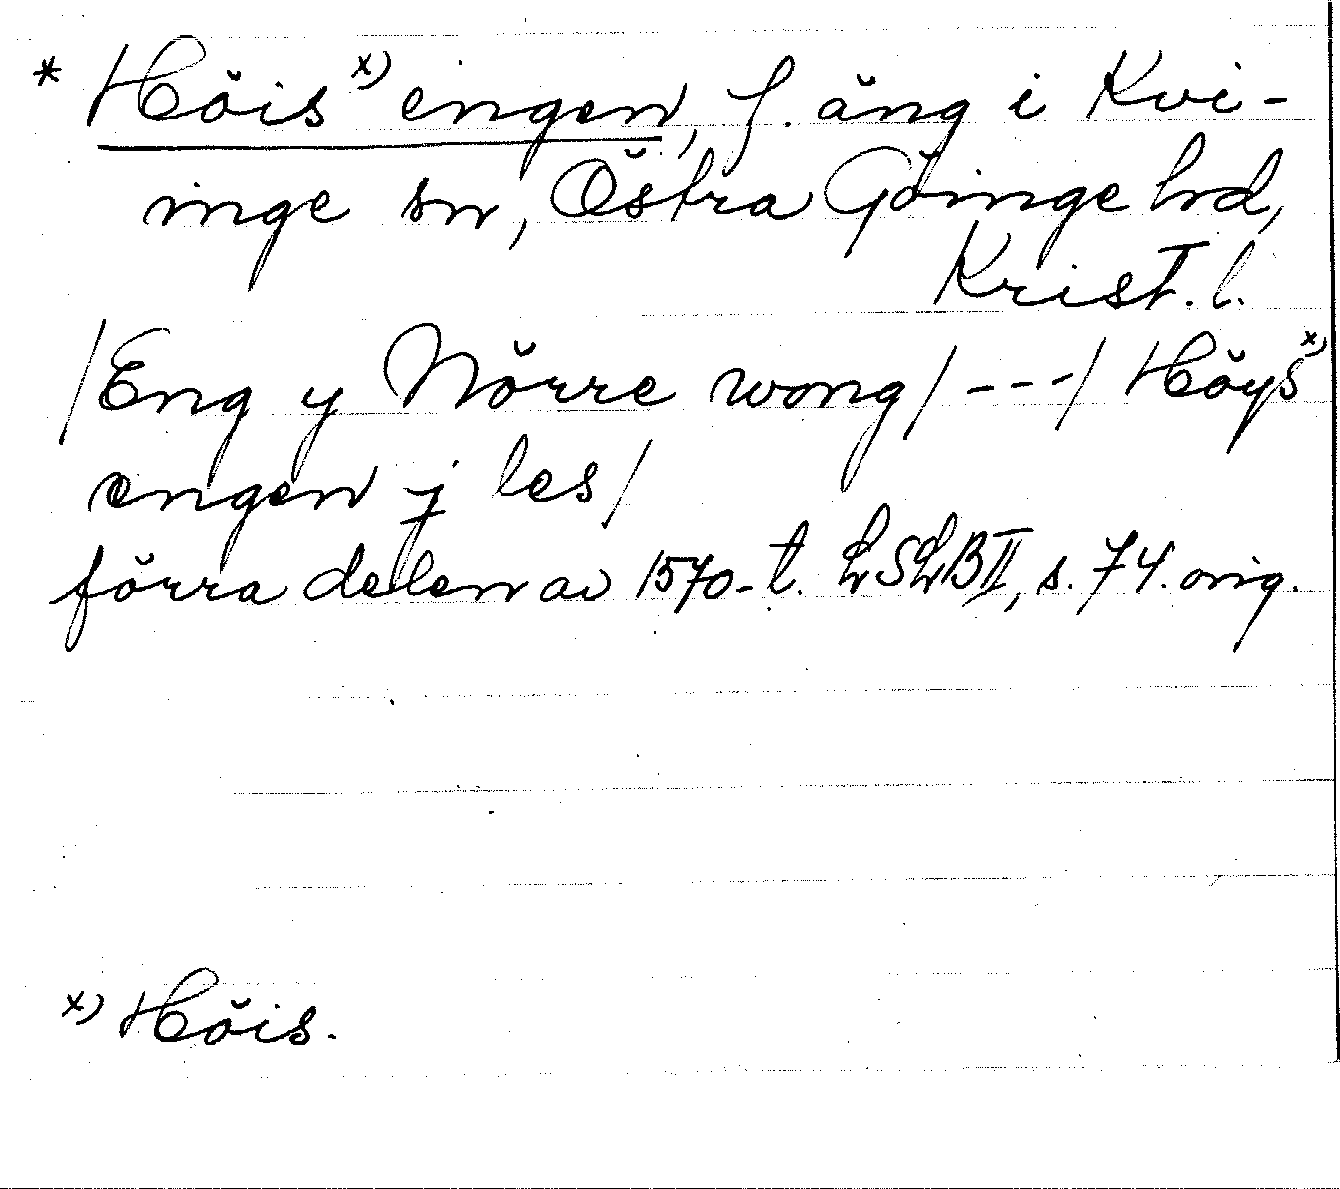 * Höis x) engen, f. äng i Kvi-
inge sn, Östra Göinge hrd,
Krist. l.
/Eng y Nörre wong/ ---/ Höys x)
engen j les/
förra delen av 1570-t. LSLB II, s. 74. orig.
x) Höis.